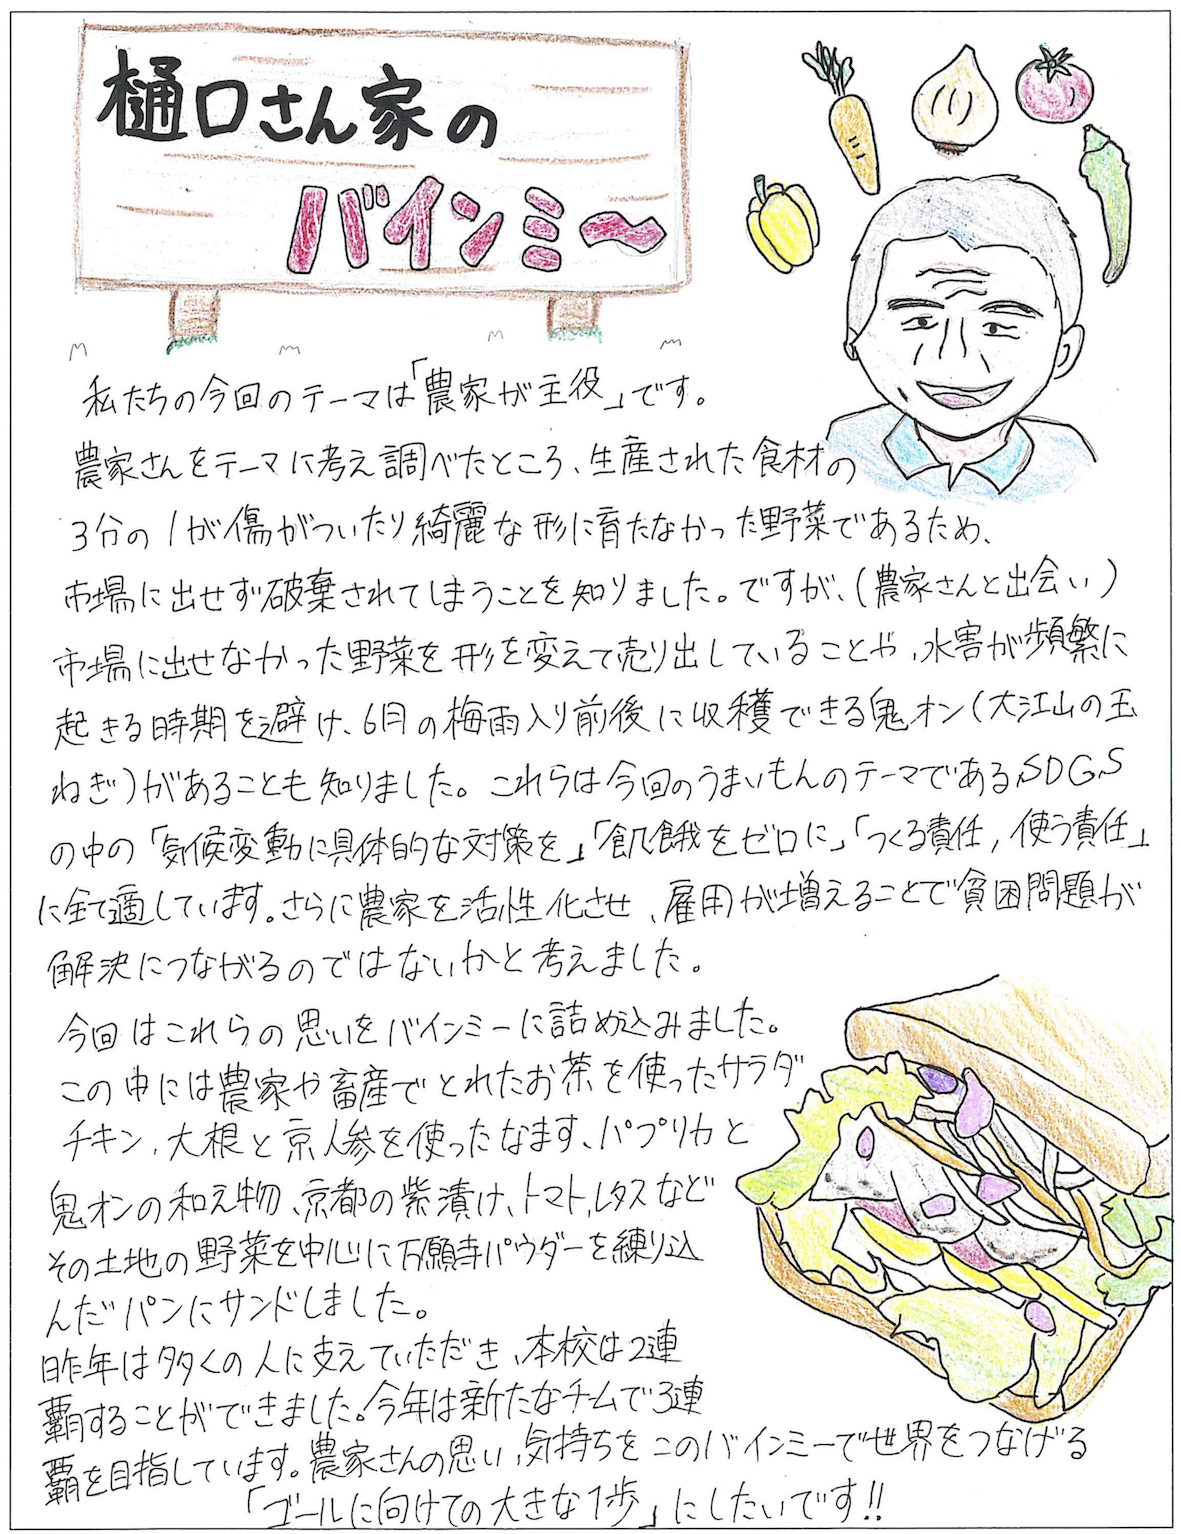 樋口さん家の
バインミ～
私たちの今回のテーマは「農家が主役」です。
農家さんをテーマに考え調べたところ、生産された食材の
3分の1が傷がついたり綺麗な形に育たなかった野菜であるため、
市場に出せず破棄されてしまうことを知りました。ですが、(農家さんと出会い)
市場に出せなかった野菜を形を変えて売り出していることや、水害が頻繁に
起きる時期を避け、6月の梅雨入り前後に収穫できる鬼オン(大江山の玉
ねぎ)があることも知りました。これらは今回のうまいもんのテーマであるSDGS
の中の「気候変動に具体的な対策を」「飢餓をゼロに」「つくる責任,使う責任」
に全て適しています。さらに農家を活性化させ、雇用が増えることで貧困問題が
解決につながるのではないかと考えました。
今回はこれらの思いをバインミーに詰め込みました。
この中には農家や畜産でとれたお茶を使ったサラダ
チキン、大根と京人参を使ったなます、パプリカと
鬼オンの和え物、京都の紫漬け、トマト,レタスなど
その土地の野菜を中心に万願寺パウダーを練り込
んだパンにサンドしました。
昨年は多くの人に支えていただき、本校は2連
覇することができました。今年は新たなチームで3連
覇を目指しています。農家さんの思い,気持ちをこのバインミーで世界をつなげる
「ゴールに向けての大きな1歩」にしたいです!!